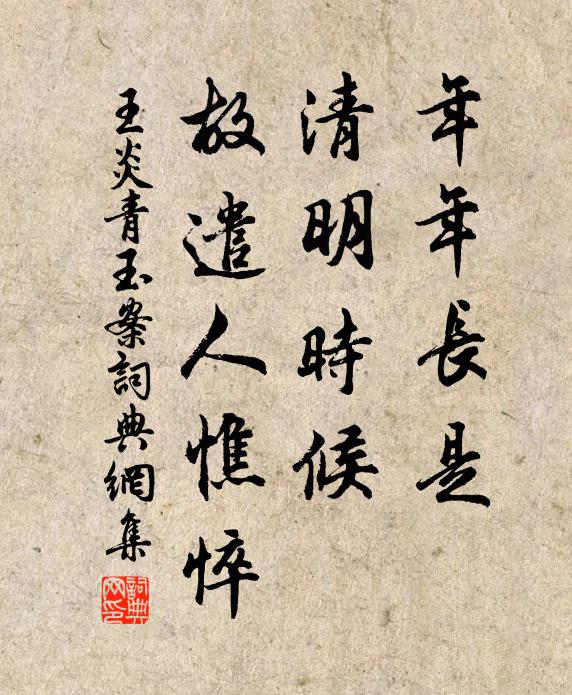 年年長是
清明時候
故遣人憔悴
王炎青玉案詞典網集
詞典網印